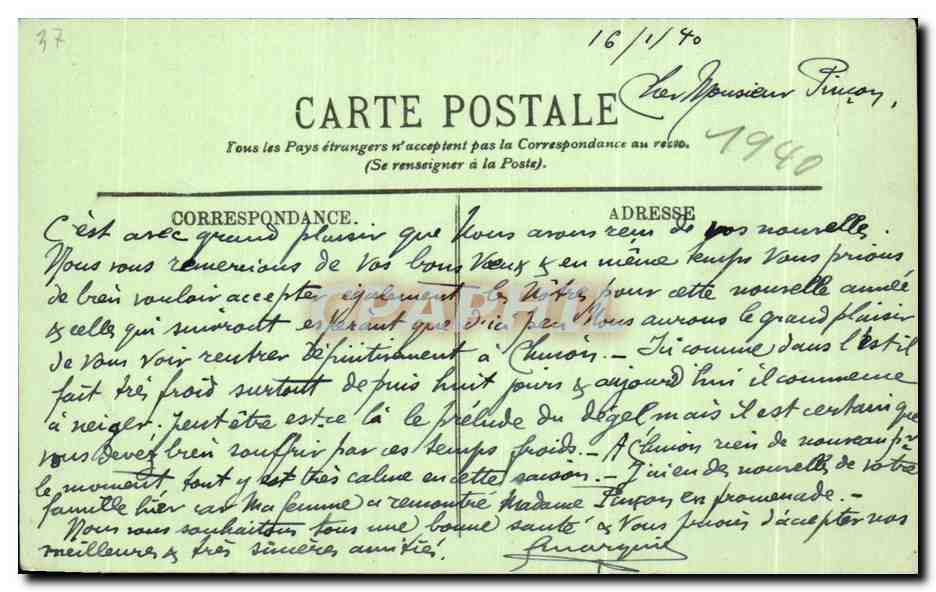 37
16/1/40
Cher Monsieur Pinçon,
CARTE POSTALE
Tous les Pays étrangers n'acceptent pas la Correspondance au recto.
(Se renseigner à la Poste).
1940
CORRESPONDANCE.
ADRESSE
C'est avec grand plaisir que Nous avons reçu de vos nouvelles.
Nous vous remercions de Vos bons Vœux & en même temps Vous prions
de bien vouloir accepter également les Nôtres pour cette nouvelle année
& celles qui suivront espérant que d'ici peu Nous aurons le grand plaisir
de Vous Voir rentrer définitivement à Chinon. - Ici comme dans l'Est il
fait très froid surtout depuis huit jours & aujourd'hui il commence
à neiger. peut être est-ce là le prélude du dégel mais il est certain que
vous devez bien souffrir par ces temps froids. - A Chinon rien de nouveau pr
le moment tout y est très calme en cette saison. - J'ai eu des nouvelles de votre
famille hier car Ma femme a rencontré Madame Pinçon en promenade. -
Nous vous souhaitons tous une bonne santé & Vous prions d'accepter nos
meilleures & très sincères amitiés.